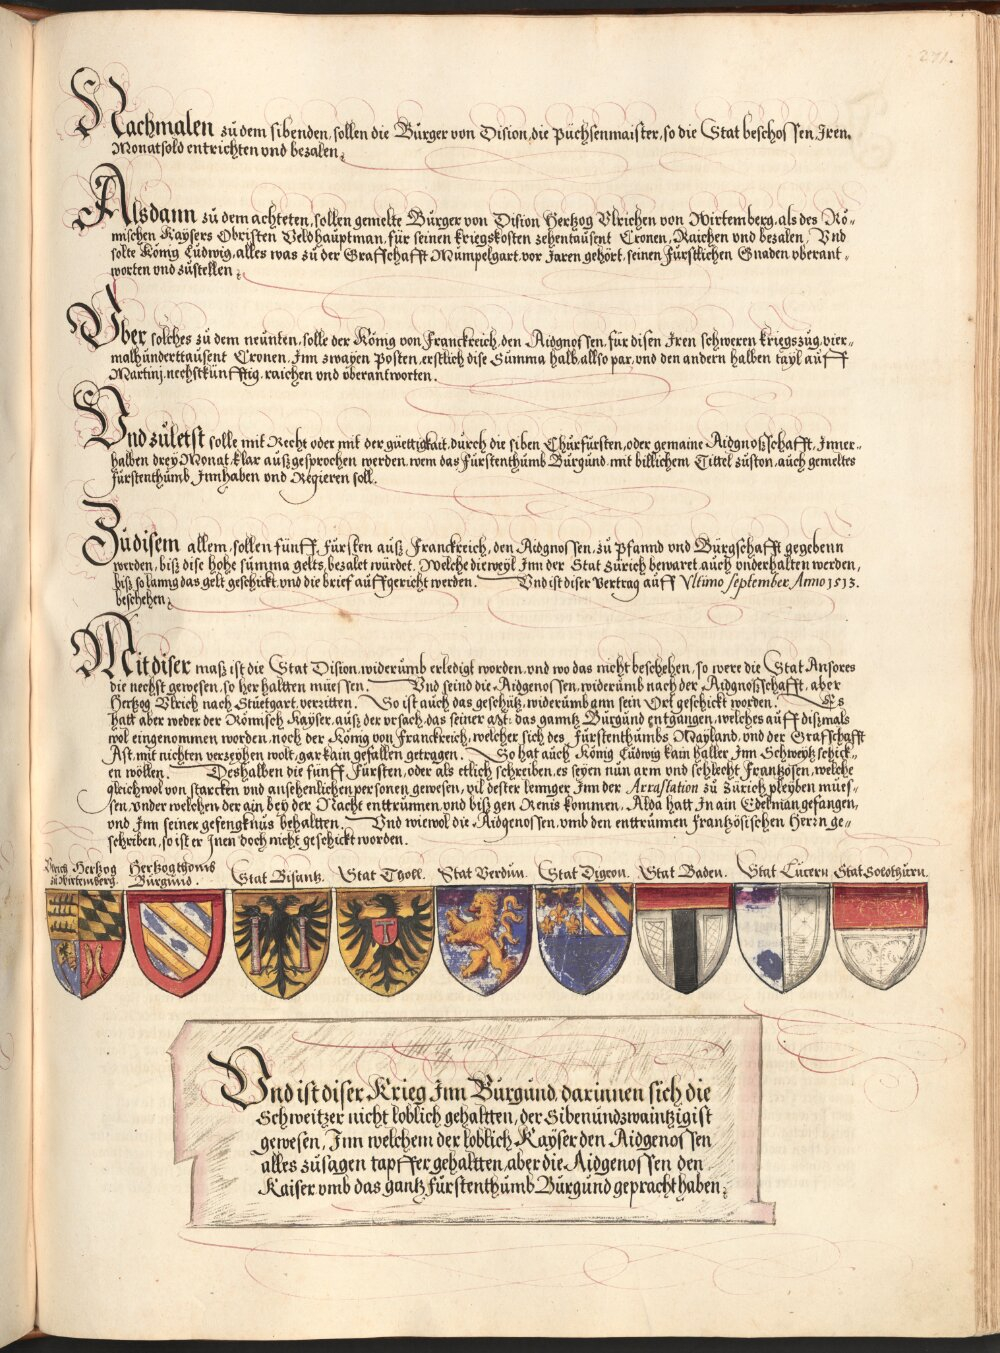 271.
Nachmalen zu dem sibenden, sollen die Bürger von Dision, die püchsenmaister, so die Stat beschossen, Iren
Monatsold entrichten vnd bezalen.
Alsdann zu dem achteten, sollen gemelte Bürger von Dision Hertzog Vlrichen von Wirtemberg, als des Rö-
mischen Kaÿsers Obristen Veldhauptman, für seinen kriegskosten zehentausent Cronen, Raichen vnd bezalen, Vnd
solte König Ludwig, alles was zu der Graffschafft Mümpelgart, vor Jaren gehört, seinen Fürstlichen Gnaden vberant-
worten vnd zustellen.
Vber solches zu dem neunten, solle der König von Franckreich, den Aidgnossen, für disen Iren schweren kriegszug, vier-
malhunderttausent Cronen, Inn zwayen Posten, erstlich dise Summa halb, allso par, vnd den andern halben tayl auff
Martinj, nechstkünfftig, raichen vnd vberantworten.
Vnd zuletst solle mit Recht oder mit der güettigkait, durch die siben Churfürsten, oder gemaine Aidgnoßschafft, Inner-
halben drey Monat, klar außgesprochen werden, wem das Fürstenthumb Burgund, mit billichem Tittel zuston, auch gemeltes
Fürstenthumb, Innhaben vnd Regieren soll.
Zu disem allem, sollen fünff Fürsten auß Franckreich, den Aidgnossen, zu Pfannd vnd Bürgschafft gegebenn
werden, biß dise hohe summa gelts, bezalet würdet. Welche dieweyl Inn der Stat Zürich bewaret auch vnderhalten werden,
biß so lanng das gelt geschickt, vnd die brief auffgericht werden. Vnd ist diser Vertrag auff Vltimo September Anno 1513.
beschehen.
Mit diser maß ist die Stat Dision, widerumb erledigt worden, vnd wo das nicht beschehen, so were die Stat Ansores
die nechst gewesen, so her haltten müessen. Vnd seind die Aidgenossen, widerumb nach der Aidgnoßschafft, aber
Hertzog Vlrich nach Stuetgart, verzitten. So ist auch das geschütz, widerumb ann sein Ort geschickt worden. Es
hatt aber weder der Römisch Kayser, auß der vrsach, das seiner Mt: das ganntz Burgund entgangen, welches auff dißmals
wol eingenommen worden, noch der König von Franckreich, welcher sich des Fürstenthumbs Mayland, vnd der Grafschafft
Ast, mit nichten verzeyhen wolt, gar kain gefallen getragen. So hat auch König Ludwig kain haller, Inn Schweytz schick-
en wöllen. Deshalben die fünff Fürsten, oder als ettlich schreiben, es seyen nun arm vnd schlecht Frantzosen, welche
gleichwol von starcken vnd ansehenlichen personen gewesen, vil dester lennger Inn der Arrastation zu Zürich pleyben mues-
sen, vnder welchen der ain bey der Nacht enttrunnen, vnd biß gen Renis kommen, Alda hatt In ain Edelman gefangen,
vnd Inn seiner gefengknus behaltten. Vnd wiewol die Aidgenossen, vmb den enttrunnen Frantzösischen Herrn ge-
schriben, so ist er Inen doch nicht geschickt worden.
Vlrich Hertzog zu Wirtemberg. Hertzogthomb Burgund. Stat Bisantz. Stat Tholl. Stat Verdun. Stat Digeon. Stat Baden. Stat Lucern Stat Solothurn.
Vnd ist diser Krieg Inn Burgund, darinnen sich die
Schweitzer nicht loblich gehaltten, der Sibenundzwaintzigist
gewesen, Inn welchem der loblich Kayser den Aidgenossen
alles zusagen tapffer gehaltten, aber die Aidgenossen den
Kaiser vmb das gantz Fürstenthumb Burgund gepracht haben.